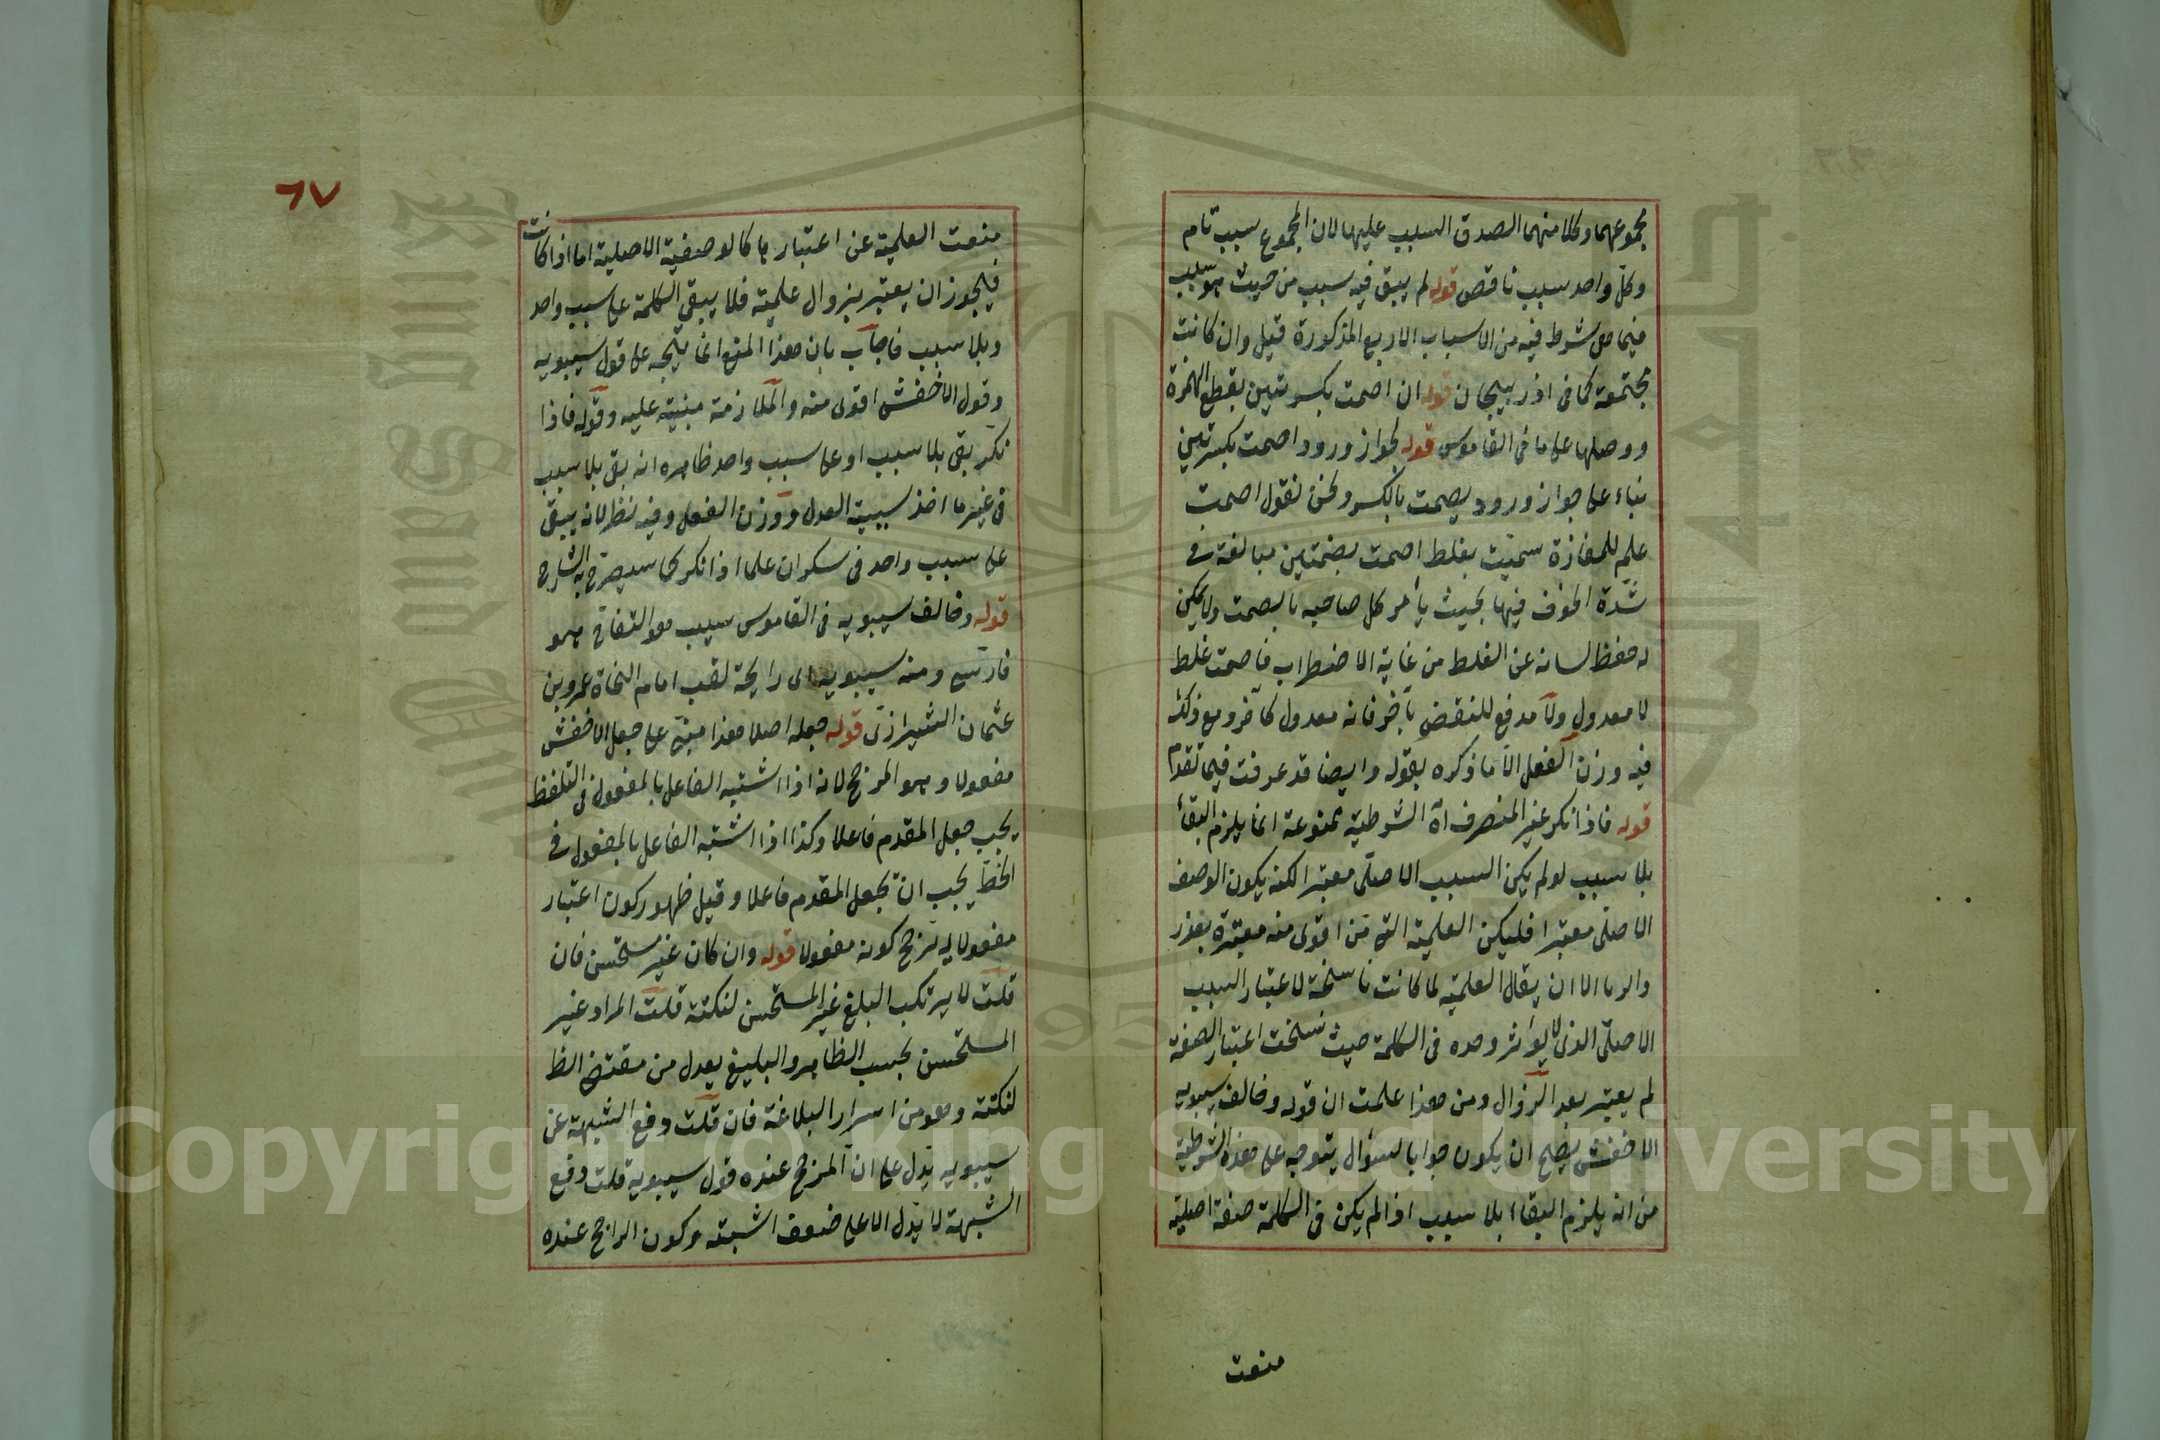 مجموعهما وكلا منهما الصدق السبب عليهما لان المجموع سبب تام
وكل واحد سبب ناقص قوله لم يبق فيه سبب من حيث هو سبب
فيما هى شرط فيه من الاسباب الاربع المذكورة قيل وان كانت
مجتمعة كما فى اذربيجان قوله ان اصمت بكسرتين بقطع الهمزة
ووصلها على ما فى القاموس قوله لجواز ورود اصمت بكسرتين
بناء على جواز ورود يصمت بالكسر ونحن نقول اصمت
علم للمفازة سميت بغلط اصمت بضمتين مبالغة فى
شدة الخوف فيها بحيث يأمر كل صاحبه بالصمت ولا يمكن
له حفظ لسانه عن الغلط من غاية الاضطراب فاصمت غلط
لا معدول ولا مدفع للنقض بأخر فانه معدول كآخر ومع ذلك
فيه وزن الفعل الا ما ذكره بقوله وايضا قد عرفت فيما تقدم
قوله فاذا نكر غير المنصرف آه الشرطية ممنوعة انما يلزم البقاء
بلا سبب لو لم يكن السبب الاصلى معتبرا لكنه يكون الوصف
الاصلى معتبرا فليكن العلمية التى هى اقوى منه معتبرة بعد
زوالها الا ان يقال العلمية لما كانت ناسخة لاعتبار السبب
الاصلى الذى لا يؤثر وحده فى الكلمة حيث نسخت اعتبار الصفة
لم يعتبر بعد الزوال ومن هذا علمت ان قوله وخالف سيبويه
الاخفش يصلح ان يكون جوابا لسؤال يتوجه على هذه الشرطية
من انه يلزم البقاء بلا سبب اذا لم يكن فى الكلمة صفة اصلية
منعت
٦٧
منعت العلمية عن اعتبارها كالوصفية الاصلية اما اذا كانت
فيجوز ان يعتبر بزوال علمية فلا يبقى الكلمة على سبب واحد
وبلا سبب فاجاب بان هذا المنع انما يتجه على قول سيبويه
وقول الاخفش اقوى منه والملازمة مبنية عليه وقوله فاذا
نكر بقى بلا سبب او على سبب واحد ظاهره انه بقى بلا سبب
فى غير ما اخذ سببية العدل ووزن الفعل وفيه نظر لانه يبقى
على سبب واحد فى سكران علما اذا نكر كما سيصرح به الشارح
قوله وخالف سيبويه فى القاموس سيب هو التفاح هو
فارسى ومنه سيبويه اى رايحة لقب امام النحاة عمرو بن
عثمان الشيرازى قوله جعله اصلا هذا مبنى على جعل الاخفش
مفعولا وهو المرجح لانه اذا اشتبه الفاعل بالمفعول فى التلفظ
يجب جعل المقدم فاعلا وكذا اذا اشتبه الفاعل بالمفعول فى
الخط يجب ان يجعل المقدم فاعلا وقيل ظهور كون اعتبار
مفعولا له يرجح كونه مفعولا قوله وان كان غير مستحسن فان
قلت لا يرتكب البلغ غير المستحسن لنكتة قلت المراد غير
المستحسن بحسب الظاهر والبليغ يعدل من مقتضى الظ
لنكتة وهو من اسرار البلاغة فان قلت دفع الشبهة عن
سيبويه يدل على ان المرجح عنده قول سيبويه قلت دفع
الشبهة لا يدل الا على ضعف اشبته وكون الراجح عنده
Copyright © King Saud University